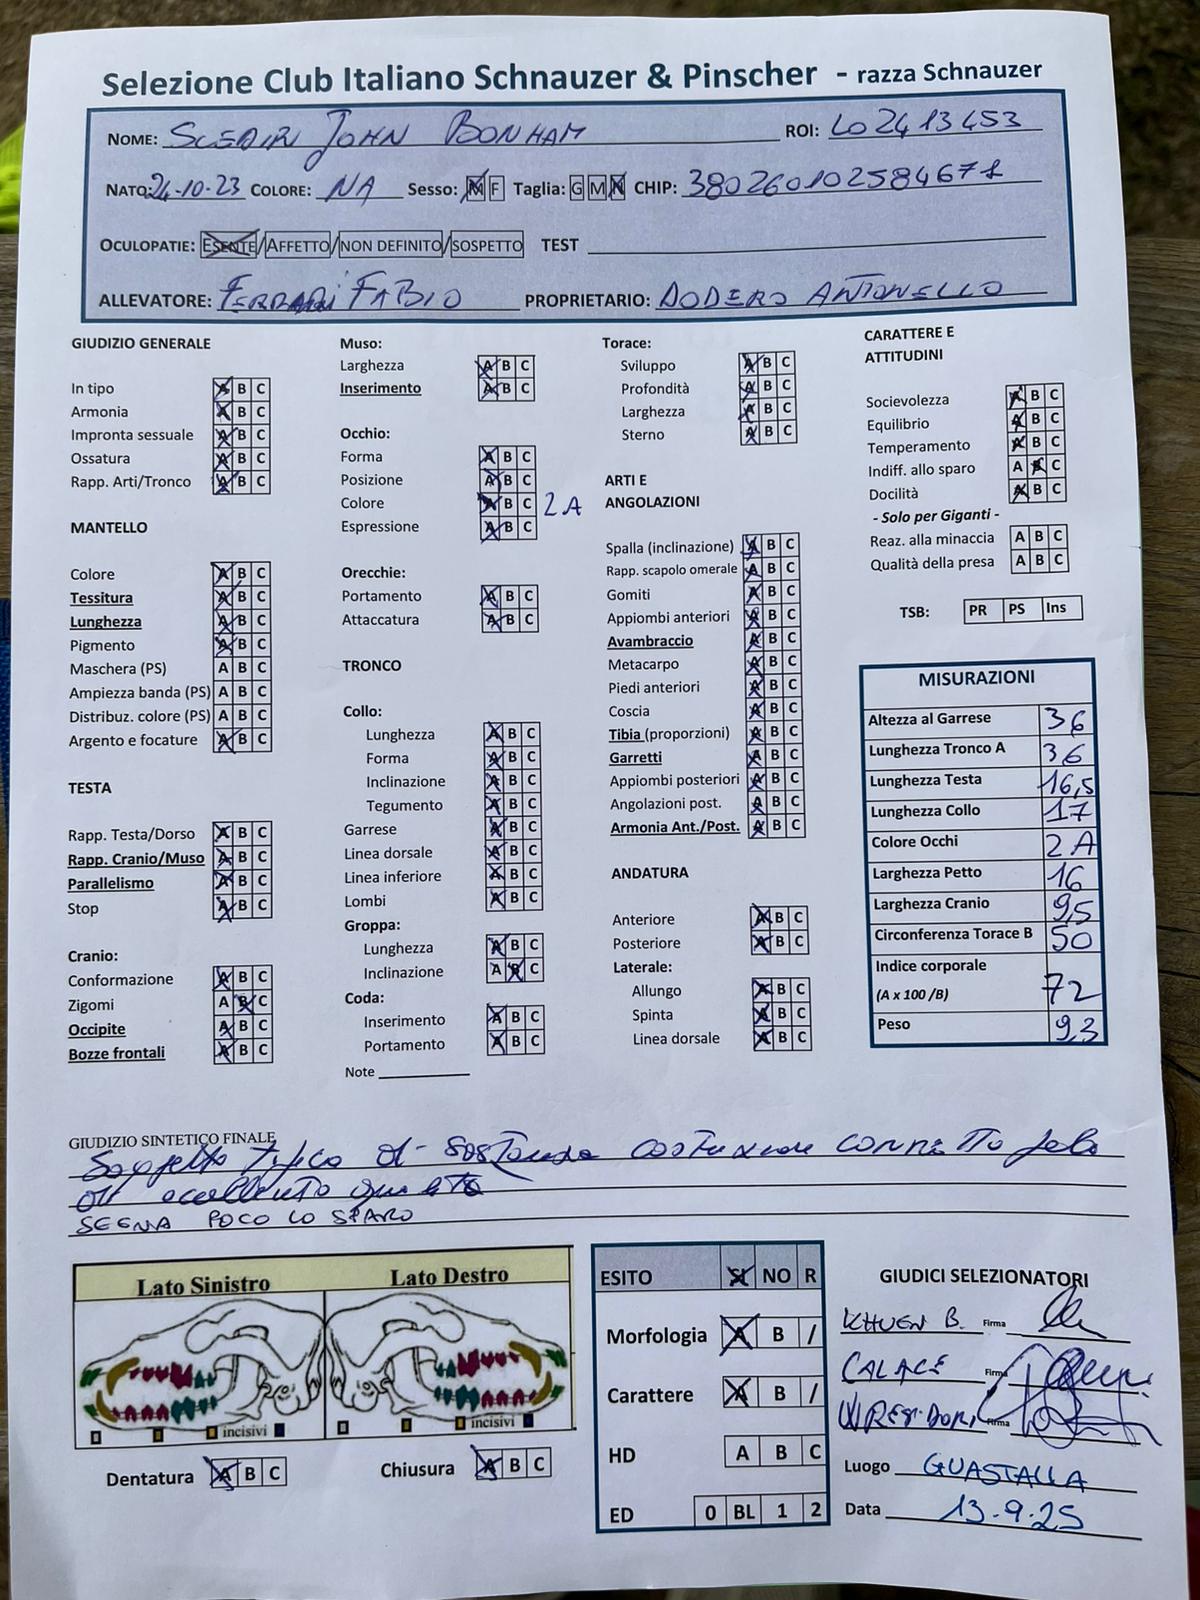 Selezione Club Italiano Schnauzer & Pinscher - razza Schnauzer
NOME: JOHN BONHAM ROI: LO2413453
NATO: 24-10-23 COLORE: NA Sesso: M F Taglia: G M N CHIP: 380260102584671
OCULOPATIE: ESENTE/AFFETTO/NON DEFINITO/SOSPETTO TEST
ALLEVATORE: FERRARI FABIO PROPRIETARIO: DODERO ANTONELLO
GIUDIZIO GENERALE
In tipo A B C
Armonia A B C
Impronta sessuale A B C
Ossatura A B C
Rapp. Arti/Tronco A B C
MANTELLO
Colore A B C
Tessitura A B C
Lunghezza A B C
Pigmento A B C
Maschera (PS) A B C
Ampiezza banda (PS) A B C
Distribuz. colore (PS) A B C
Argento e focature A B C
TESTA
Rapp. Testa/Dorso A B C
Rapp. Cranio/Muso A B C
Parallelismo A B C
Stop A B C
Cranio:
Conformazione A B C
Zigomi A B C
Occipite A B C
Bozze frontali A B C
Muso:
Larghezza A B C
Inserimento A B C
Occhio:
Forma A B C
Posizione A B C
Colore A B C 2A
Espressione A B C
Orecchie:
Portamento A B C
Attaccatura A B C
TRONCO
Collo:
Lunghezza A B C
Forma A B C
Inclinazione A B C
Tegumento A B C
Garrese A B C
Linea dorsale A B C
Linea inferiore A B C
Lombi A B C
Groppa:
Lunghezza A B C
Inclinazione A B C
Coda:
Inserimento A B C
Portamento A B C
Note
Torace:
Sviluppo A B C
Profondità A B C
Larghezza A B C
Sterno A B C
ARTI E
ANGOLAZIONI
Spalla (inclinazione) A B C
Rapp. scapolo omerale A B C
Gomiti A B C
Appiombi anteriori A B C
Avambraccio A B C
Metacarpo A B C
Piedi anteriori A B C
Coscia A B C
Tibia (proporzioni) A B C
Garretti A B C
Appiombi posteriori A B C
Angolazioni post. A B C
Armonia Ant./Post. A B C
ANDATURA
Anteriore A B C
Posteriore A B C
Laterale:
Allungo A B C
Spinta A B C
Linea dorsale A B C
CARATTERE E
ATTITUDINI
Socievolezza A B C
Equilibrio A B C
Temperamento A B C
Indiff. allo sparo A B C
Docilità A B C
- Solo per Giganti -
Reaz. alla minaccia A B C
Qualità della presa A B C
TSB: PR PS Ins
MISURAZIONI
Altezza al Garrese 36
Lunghezza Tronco A 36
Lunghezza Testa 16,5
Lunghezza Collo 17
Colore Occhi 2A
Larghezza Petto 16
Larghezza Cranio 9,5
Circonferenza Torace B 50
Indice corporale
(A x 100 /B) 72
Peso 9,3
GIUDIZIO SINTETICO FINALE
Soggetto tipico di sostanza costruzione corretto pelo
di eccellente
SEGNA POCO LO SPARO
Lato Sinistro Lato Destro
incisivi incisivi
Dentatura A B C Chiusura A B C
ESITO SI NO R
Morfologia A B /
Carattere A B /
HD A B C
ED 0 BL 1 2
GIUDICI SELEZIONATORI
KHUEN B. Firma
CALACE Firma
Firma
Luogo GUASTALLA
Data 13.9.25